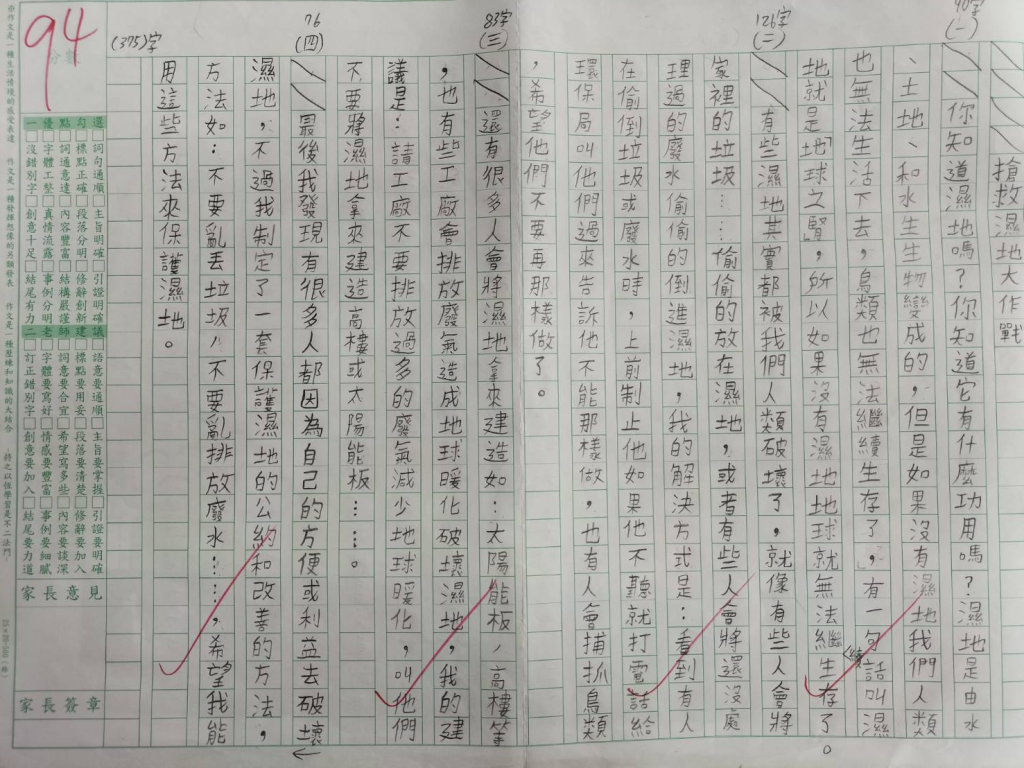 搶救濕地大作戰
90字
(一)
你知道濕地嗎？你知道它有什麼功用嗎？濕地是由水
、土地、和水生生物變成的，但是如果沒有濕地我們人類
也無法生活下去，鳥類也無法繼續生存了，有一句話叫濕
地就是「地球之腎」，所以如果沒有濕地地球就無法繼續生存了。
126字
(二)
有些濕地其實都被我們人類破壞了，就像有些人會將
家裡的垃圾……偷偷的放在濕地，或者有些人會將還沒處
理過的廢水偷偷的倒進濕地，我的解決方式是：看到有人
在偷倒垃圾或廢水時，上前制止他如果他不聽就打電話給
環保局叫他們過來告訴他不能那樣做，也有人會捕抓鳥類
，希望他們不要再那樣做了。
83字
(三)
還有很多人會將濕地拿來建造如：太陽能板、高樓等
，也有些工廠會排放廢氣造成地球暖化破壞濕地，我的建
議是：請工廠不要排放過多的廢氣減少地球暖化，叫他們
不要將濕地拿來建造高樓或太陽能板……。
76
(四)
最後我發現有很多人都因為自己的方便或利益去破壞
濕地，不過我制定了一套保護濕地的公約和改善的方法，
方法如：不要亂丟垃圾、不要亂排放廢水……，希望我能
用這些方法來保護濕地。
(375)字
94
分數
一優點勾選
沒錯別字 字體工整 詞通意達 標點正確 詞句通順
創意十足 真情流露 內容豐富 段落分明 主旨明確
結尾有力 事例分明 結構嚴謹 修辭創新 引證明確
二老師建議
訂正錯別字 字體要寫好 詞意要合宜 標點要用妥 語意要通順
創意要加入 情感要豐富 希望寫多些 段落要清楚 主旨要掌握
結尾要力道 事例要細膩 內容要談深 修辭要加入 引證要明確
家長意見
家長簽章